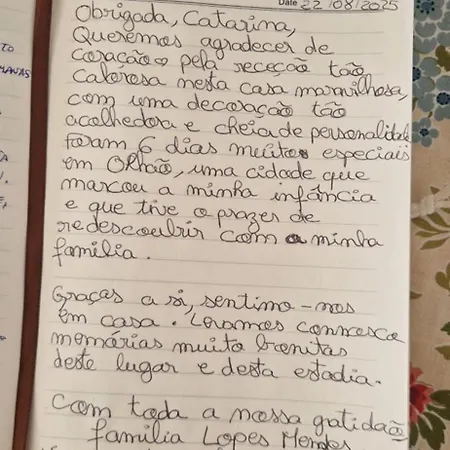 Date 22/08/2025
Obrigada, Catarina,
Queremos agradecer de
coração pela receção tão
calorosa nesta casa maravilhosa,
com uma decoração tão
acolhedora e cheia de personalidade
foram 6 dias muito especiais
em Olhão, uma cidade que
marcou a minha infância
e que tive o prazer de
redescoubrir com a minha
família.
Graças a si, sentimo-nos
em casa. Levamos connosco
memórias muito bonitas
deste lugar e desta estadia.
Com toda a nossa gatidão
família Lopes Mendes